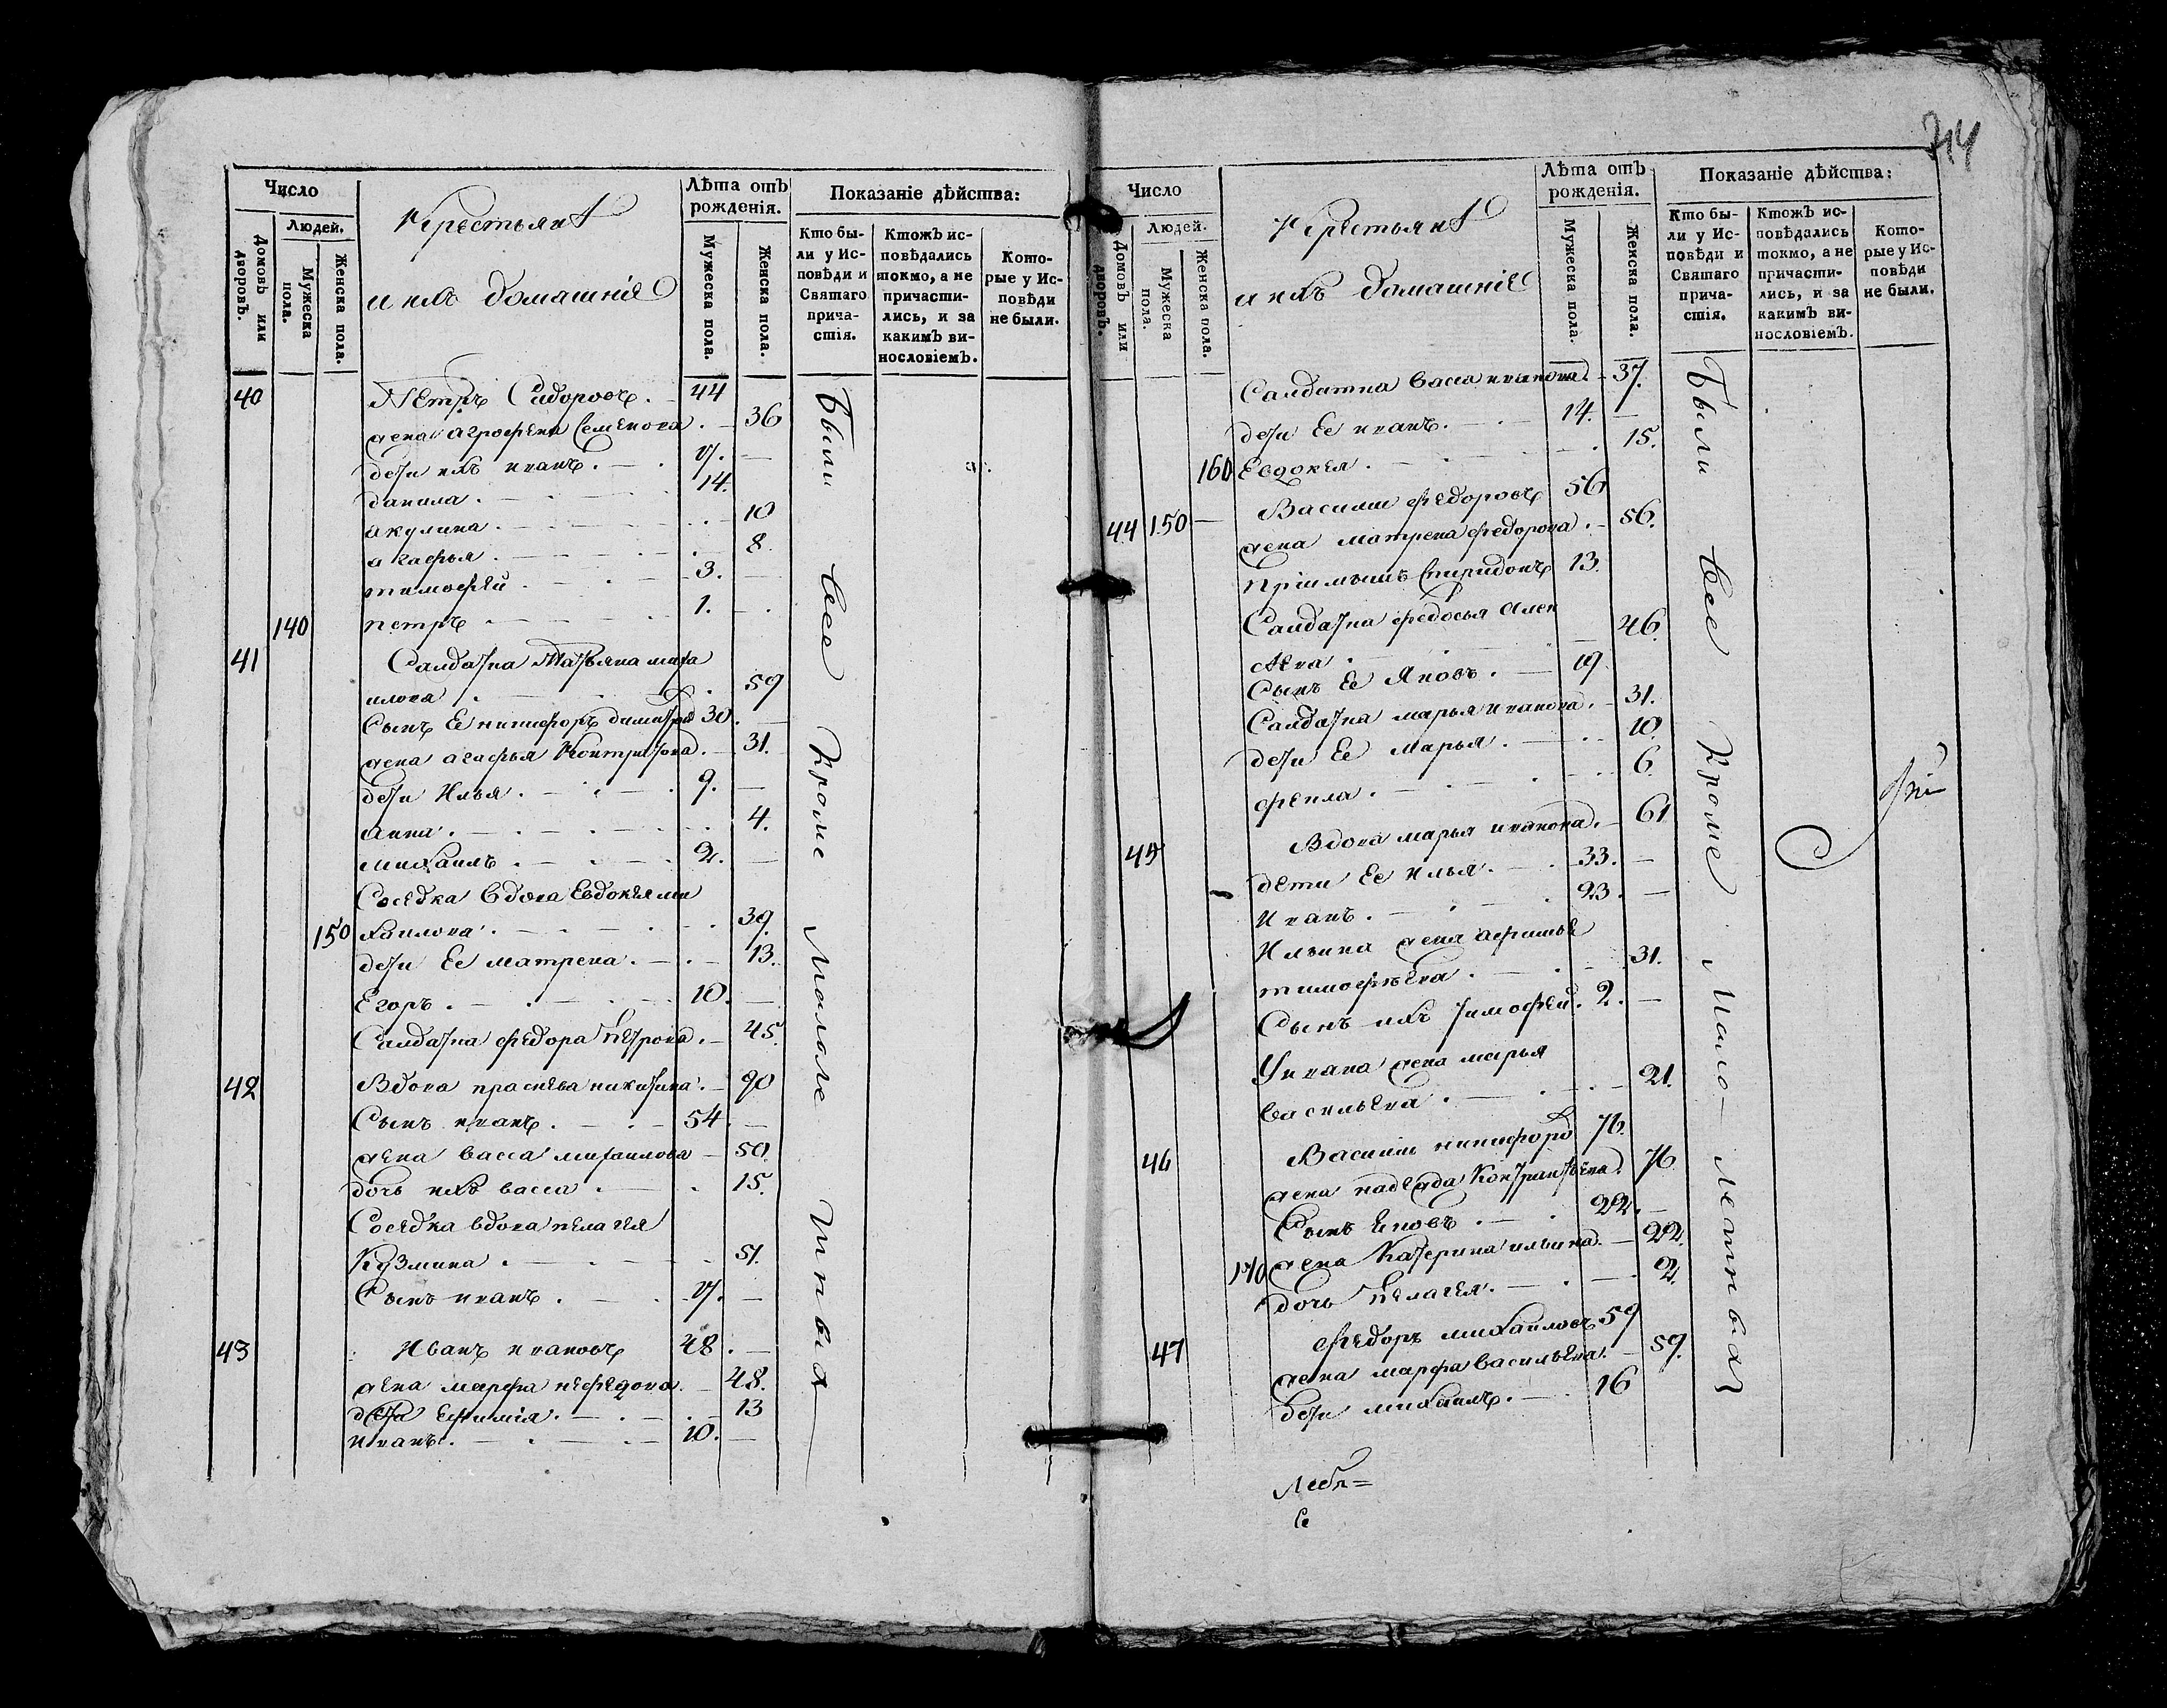 Число
Людей.
Домовъ или дворовъ.
Мужеска пола.
Женска пола.
Крестьянѣ
и ихъ домашніе
Лѣта отъ рожденія.
Мужеска пола.
Женска пола.
Показаніе дѣйства:
Кто бы-
ли у Ис-
повѣди и
Святаго
прича-
стія.
Ктожъ ис-
повѣдались
токмо, а не
причасти-
лись, и за
какимъ ви-
нословіемъ.
Кото-
рые у Ис-
повѣди
не были.
40 Петръ Сидоровъ. 44
жена агрофена Семенова. 36
дети ихъ иванъ. 17.
данила. 14.
акулина. 10
агафья. 8.
тимофей. 3.
140 петръ 1.
41 Салдатка Татьяна миха
илова. 59
Сынъ Ее никифоръ 30.
жена агафья Контратова. 31.
дети Илья. 9.
анна. 4.
михаилъ. 2.
Соседка вдова Евдокея ми
150 хаилова. 39.
дети Ее матрена. 13.
Егоръ. 10.
Салдатка федора Петрова. 45.
42 Вдова прасковья никитина. 90
Сынъ иванъ. 54
жена васса михаилова 50.
дочь ихъ васса. 15.
Соседка вдова пелагея
Кузмина. 51.
Сынъ иванъ. 17.
43 Иванъ ивановъ 48.
жена марфа нефедова. 48.
дети Ефимія. 13
иванъ. 10.
Были Все Кроме Малолетныхъ
714
Число
Людей.
Домовъ или дворовъ.
Мужеска пола.
Женска пола.
Крестьянѣ
и ихъ домашніе
Лѣта отъ рожденія.
Мужеска пола.
Женска пола.
Показаніе дѣйства:
Кто бы-
ли у Ис-
повѣди и
Святаго
прича-
стія.
Ктожъ ис-
повѣдались
токмо, а не
причасти-
лись, и за
какимъ ви-
нословіемъ.
Кото-
рые у Ис-
повѣди
не были.
Салдатка васса иванова. 37.
дети Ее иванъ. 14.
160 Евдокея. 15.
44 150 Василии федоровъ 56
жена матрена федорова. 56.
пріимышъ Спиридонъ 13.
Салдатка федосья Алек
сѣева. 46.
Сынъ Ее Яковъ. 19
Салдатка марья иванова. 31.
дети Ее марья. 10.
фекла. 6.
45 Вдова марья иванова. 61
дети Ее илья. 33.
Иванъ. 23.
Ильина жена
тимофѣева. 31.
Сынъ ихъ тимофей. 2.
У ивана жена марья
васильева. 21.
46 Василіи никифоро 76.
жена надежда 76
Сынъ Яковъ. 22.
жена Катерина ильина. 22.
170 дочь Пелагея. 2.
47 Федоръ михаиловъ 59
жена марфа васильева. 59.
дети михаилъ. 16
Были Все Кроме Мало-летныхъ